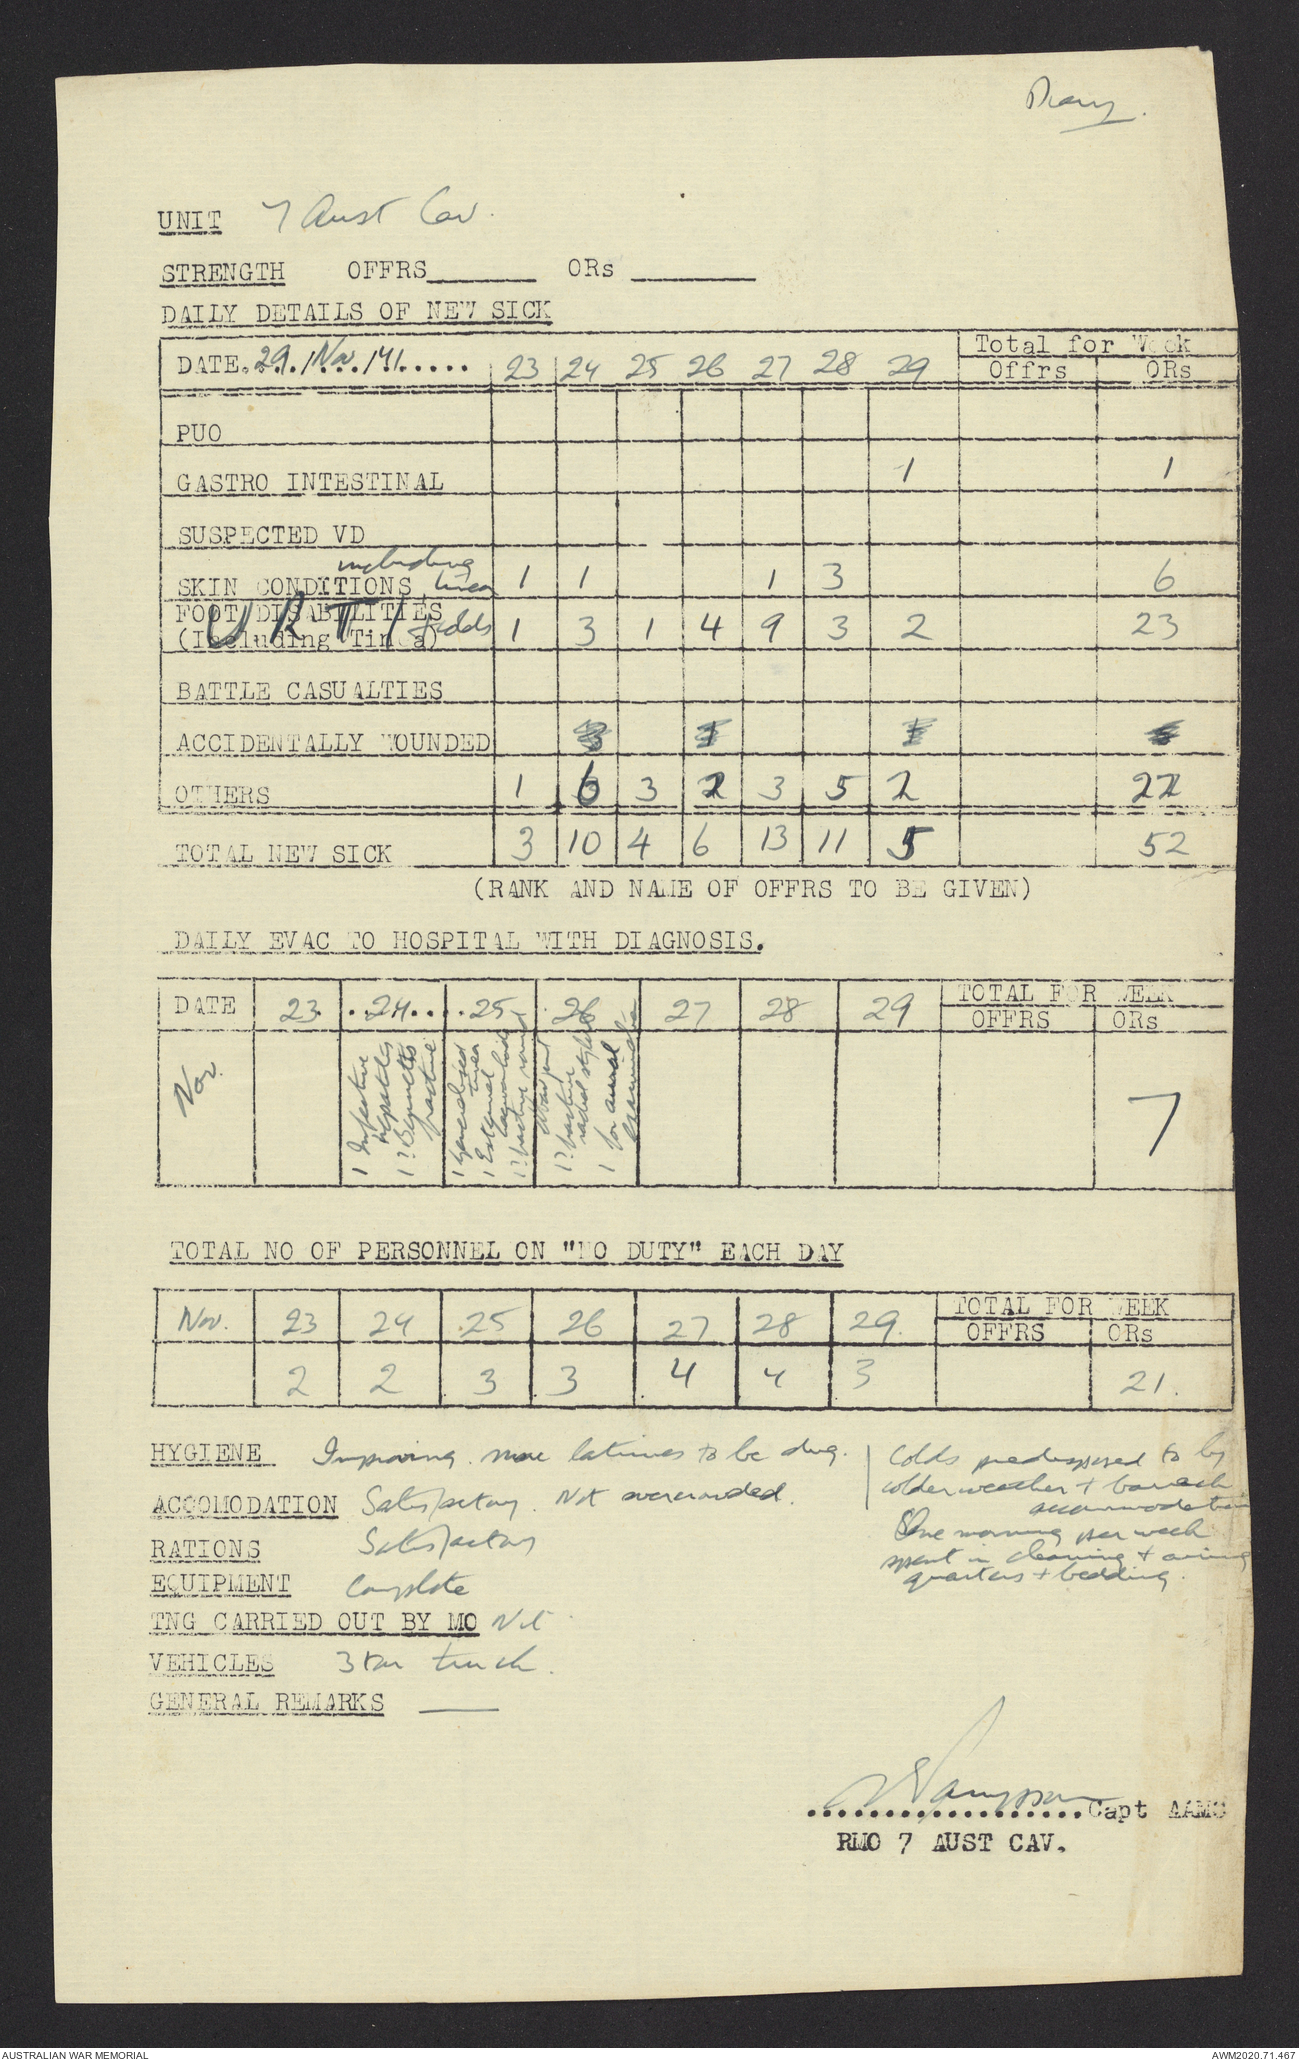 Diary.
UNIT 7 Aust Cav.
STRENGTH OFFRS ORs
DAILY DETAILS OF NEW SICK
DATE. 29/Nov/41 23 24 25 26 27 28 29 Total for Week
Offrs ORs
PUO
GASTRO INTESTINAL 1 1
SUSPECTED VD
including
SKIN CONDITIONS tinea 1 1 1 3 6
FOOT DISABILITIES
(Including Tinea)
URTI + colds 1 3 1 4 9 3 2 23
BATTLE CASUALTIES
ACCIDENTALLY WOUNDED
OTHERS 1 6 3 2 3 5 2 22
TOTAL NEW SICK 3 10 4 6 13 11 5 52
(RANK AND NAME OF OFFRS TO BE GIVEN)
DAILY EVAC TO HOSPITAL WITH DIAGNOSIS.
DATE 23 24 25 26 27 28 29 TOTAL FOR WEEK
OFFRS ORs
Nov.
1 Infective
hepatitis
1 ? Bennetts
fracture
1 generalised
tinea
1 External
haemorrhoids
1 ? fracture
1 ? fracture
radial styloid
1 for
7
TOTAL NO OF PERSONNEL ON "NO DUTY" EACH DAY
Nov. 23 24 25 26 27 28 29. TOTAL FOR WEEK
OFFRS ORs
2 2 3 3 4 4 3 21.
HYGIENE Improving. more latrines to be dug.
ACCOMODATION Satisfactory. Not overcrowded.
RATIONS Satisfactory
EQUIPMENT Complete
TNG CARRIED OUT BY MO Nil
VEHICLES 3 ton truck.
GENERAL REMARKS —
Colds predisposed to by
colder weather + barrack
accommodation
One morning per week
spent in cleaning + airing
quarters + bedding.
Capt AAMC
RMO 7 AUST CAV.
AUSTRALIAN WAR MEMORIAL
AWM2020.71.467